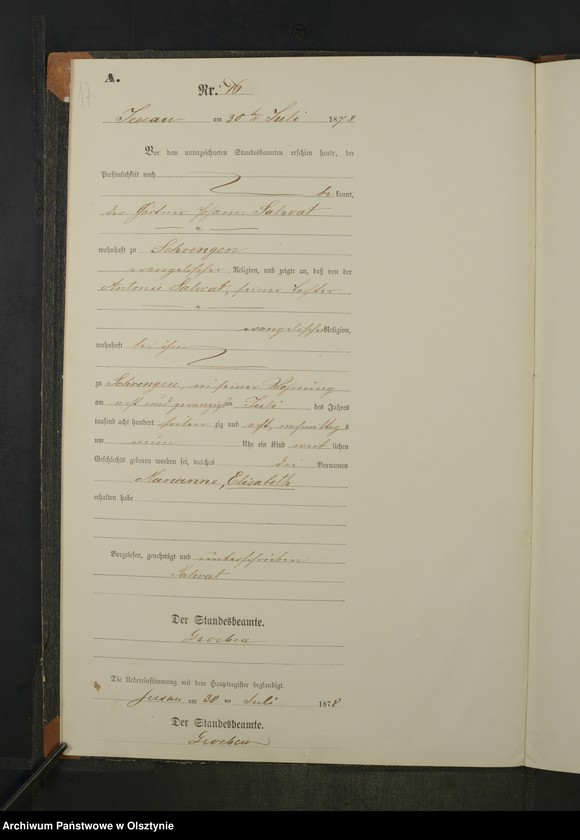 A.
17
Nr. 76
Juesau am 30ten Juli 1878
Vor dem unterzeichneten Standesbeamten erschien heute, der
Persönlichkeit nach
be kannt,
der Gärtner Johann Salwat
wohnhaft zu Schrengen
evangelischer Religion, und zeigte an, daß von der
Antonie Salwat, seiner Tochter
evangelischer Religion,
wohnhaft bei ihm
zu Schrengen, in seiner Wohnung
am acht und zwanzigsten Juli des Jahres
tausend acht hundert sieben zig und acht, nachmittags
um neun Uhr ein Kind weib lichen
Geschlechts geboren worden sei, welches die Vornamen
Marianne, Elisabeth
erhalten habe
Vorgelesen, genehmigt und unterschrieben
Salwat
Der Standesbeamte.
Groeben
Die Uebereinstimmung mit dem Hauptregister beglaubigt.
Juesau am 30 ten Juli 1878
Der Standesbeamte.
Groeben
Archiwum Państwowe w Olsztynie